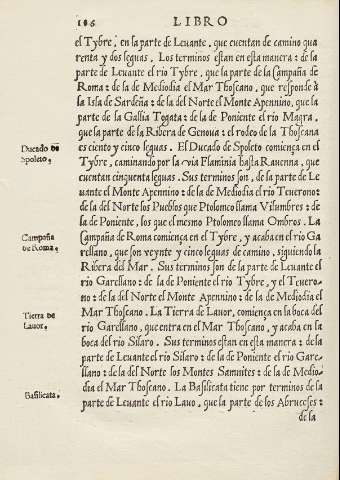 186 LIBRO
el Tybre, en la parte de Leuante, que cuentan de camino qua
renta y dos leguas. Los terminos estan en esta manera: de la
parte de Leuante el rio Tybre, que la parte de la Campaña de
Roma: de la de Mediodia el Mar Thoscano, que responde à
la Isla de Sardeña: de la del Norte el Monte Apennino, que la
parte de la Gallia Togata: de la de Poniente el rio Magra,
que la parte de la Ribera de Genoua: el rodeo de la Thoscana
es ciento y cinco leguas. El Ducado de Spoleto comiença en el
Tybre, caminando por la via Flaminia hasta Rauenna, que
cuentan cinquenta leguas. Sus terminos son, de la parte de Le
uante el Monte Apennino: de la de Mediodia el rio Teuerono:
de la del Norte los Pueblos que Ptolomeo llama Vilumbres: de
la de Poniente, los que el mesmo Ptolomeo llama Ombros. La
Campaña de Roma comiença en el Tybre, y acaba en el rio Ga
rellano, que son veynte y cinco leguas de camino, siguiendo la
Ribera del Mar. Sus terminos son de la parte de Leuante el
rio Garellano: de la de Poniente el rio Tybre, y el Teuero
no: de la del Norte el Monte Apennino: de la de Mediodia el
Mar Thoscano. La Tierra de Lauor, comiença en la boca del
rio Garellano, que entra en el Mar Thoscano, y acaba en la
boca del rio Silaro. Sus terminos estan en esta manera: de la
parte de Leuante el rio Silaro: de la de Poniente el rio Gare
llano: de la del Norte los Montes Samnites: de la de Medio
dia el Mar Thoscano. La Basilicata tiene por terminos de la
parte de Leuante el rio Lauo, que la parte de los Abruceses:
de la
Ducado de
Spoleto.
Campaña
de Roma.
Tierra de
Lauor.
Basilicata.